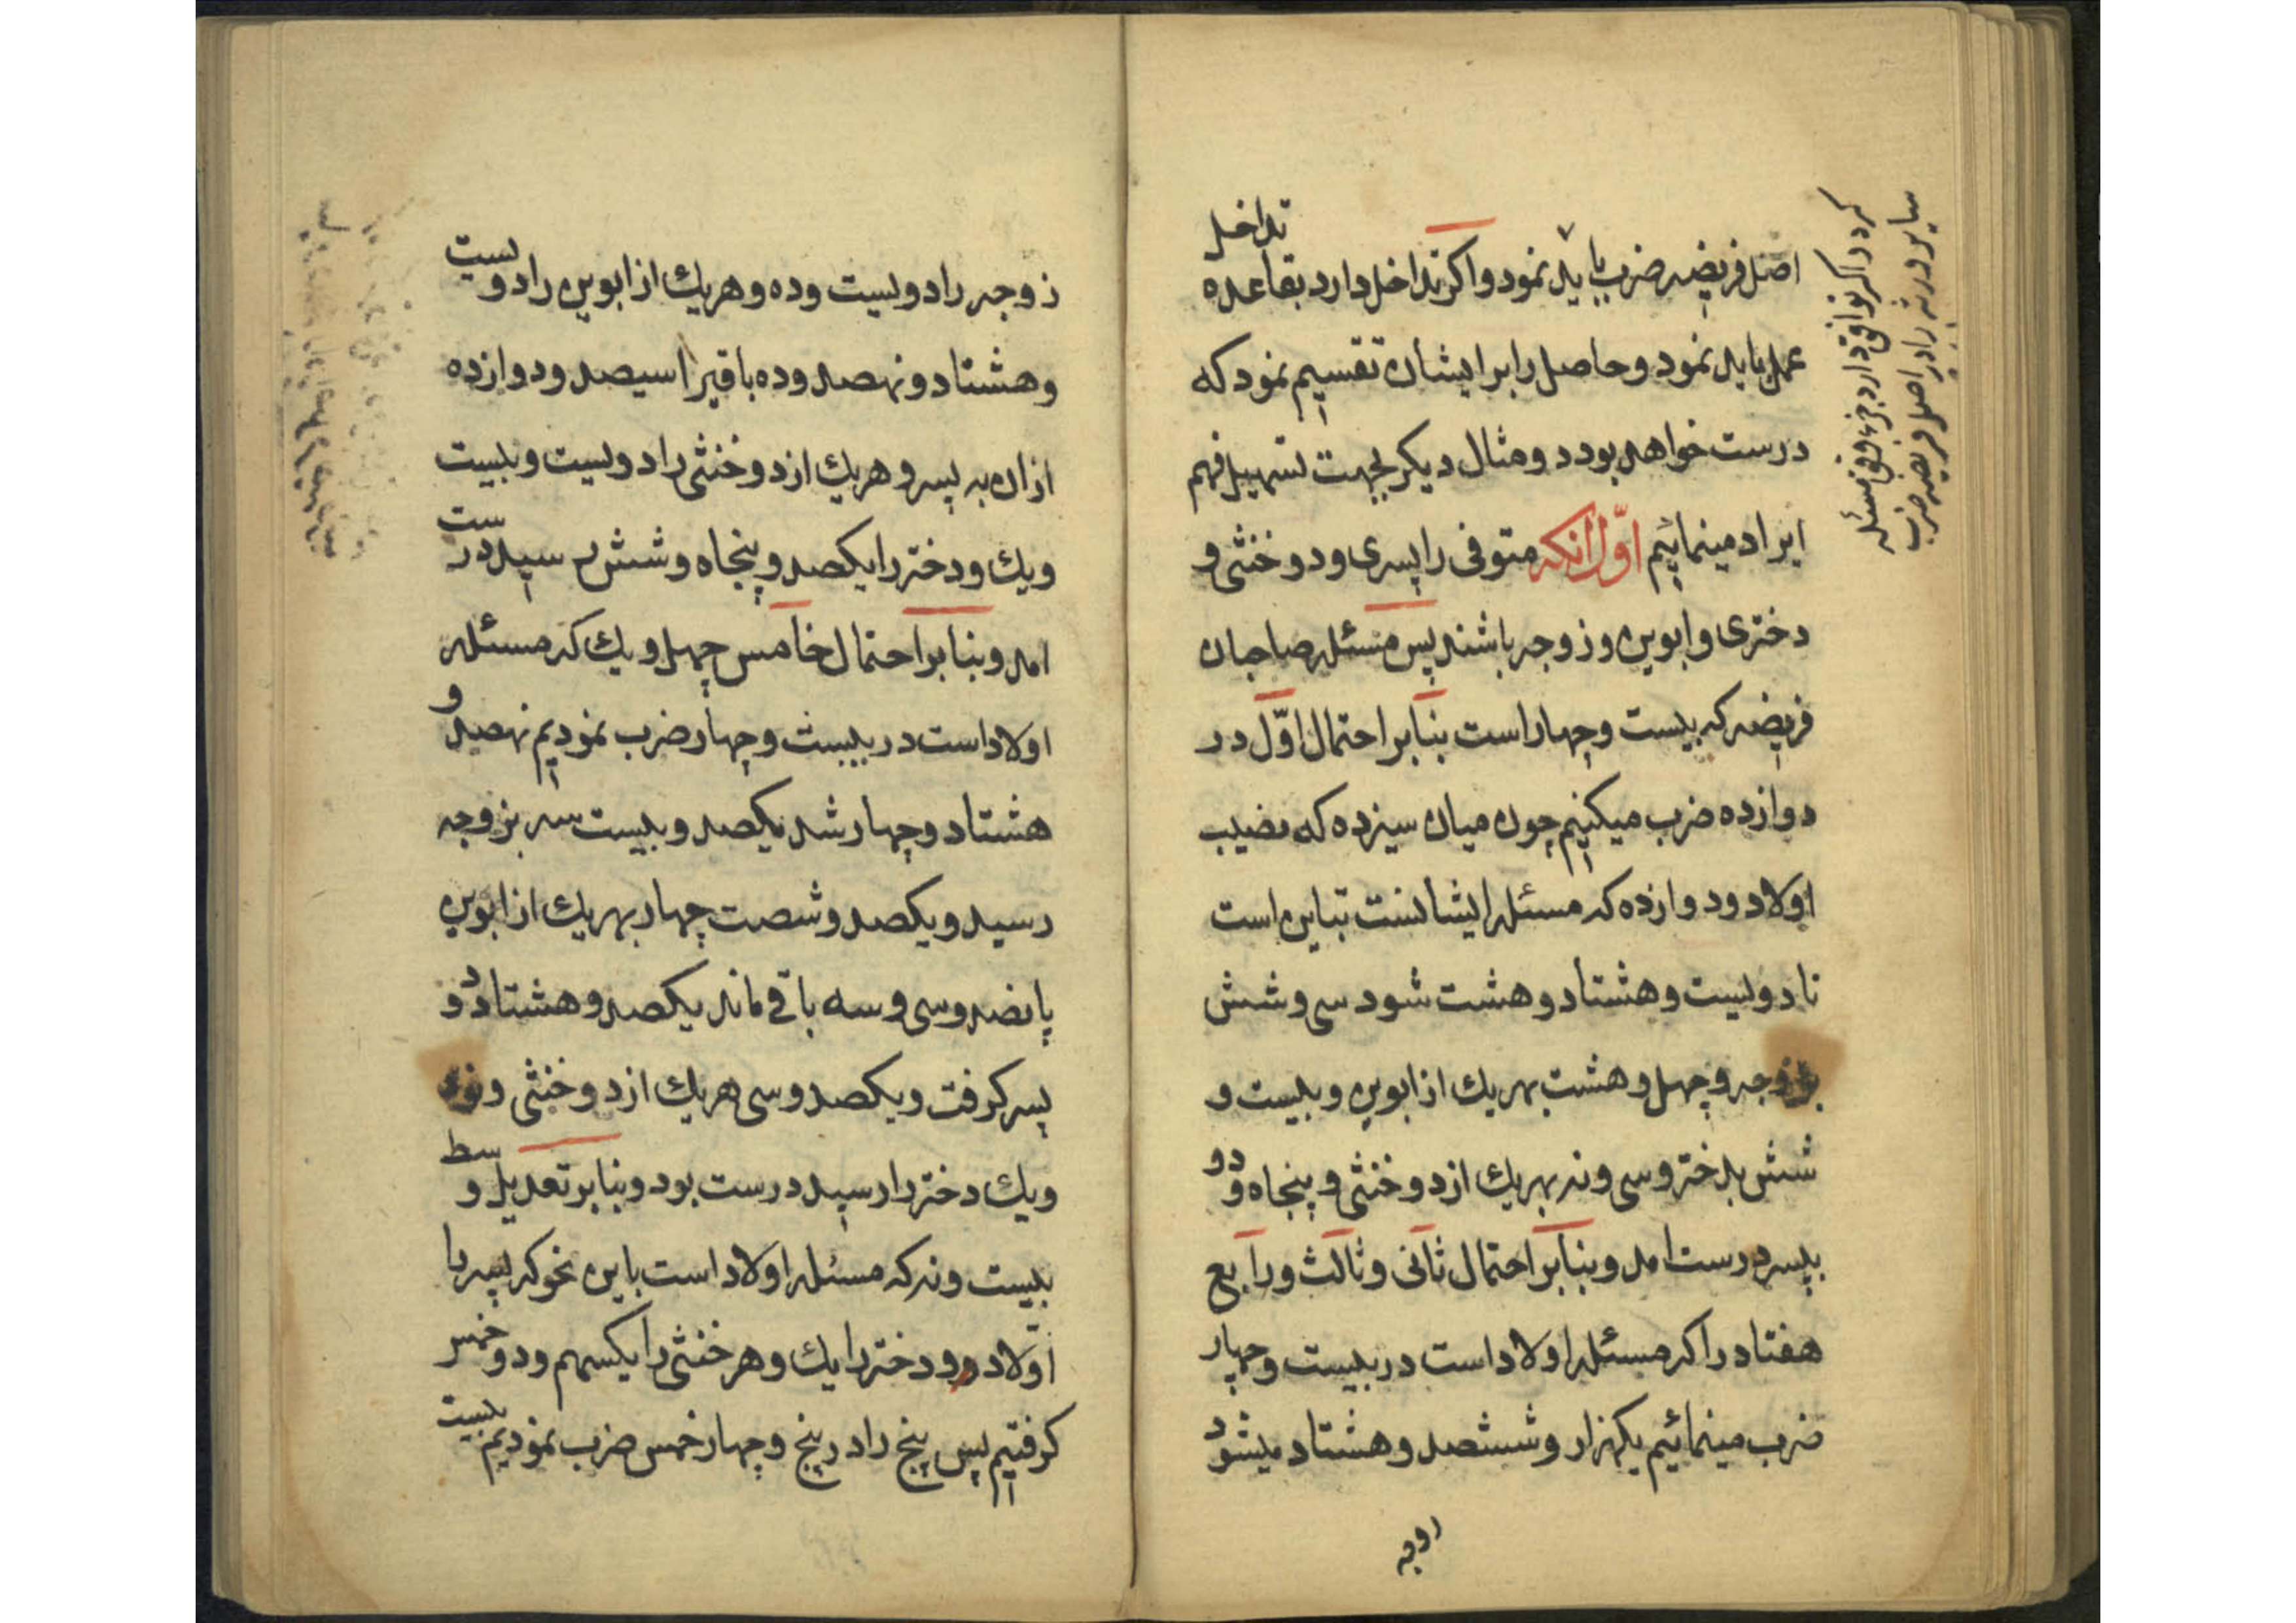 اصل فریضه ضرب باید نمود و اکر تداخل دارد بقاعده تداخل
عمل باید نمود و حاصل را بر ایشان تقسیم نمود که
درست خواهد بود و مثال دیکر بجهت تسهیل فهم
ایراد مینمائیم اوّل انکه متوفی را پسری و دو خنثی و
دختری و ابوین و زوجه باشند پس مسئله صاحبان
فریضه که بیست و چهار است بنابر احتمال اوّل در
دوازده ضرب میکنیم چون میان سیزده که نصیب
اولاد و دوازده که مسئله ایشانست تباین است
تا دویست و هشتاد و هشت شود سی و شش
بزوجه و چهل و هشت بهریك از ابوین و بیست و
شش بدختر و سی و نه بهریك از دو خنثی و پنجاه و دو
بپسر درست امد و بنابر احتمال ثانی و ثالث و رابع
هفتاد را که مسئله اولاد است در بیست و چهار
ضرب مینمائیم یکهزار و ششصد و هشتاد میشود
کردد اکر توافق دارد جزء وفق مسئله
سایر ورثه را در اصل فریضه ضرب
زوجه را دویست و ده و هریك از ابوین را دویست
و هشتاد و نهصد و ده باقیرا سیصد و دوازده
ازان به پسر و هریك از دو خنثی را دویست و بیست
ویك و دختر را یکصد و پنجاه و شش رسید درست
امد و بنابر احتمال خامس چهل و یك که مسئله
اولاد است در بیست و چهار ضرب نمودیم نهصد و
هشتاد و چهار شد یکصد و بیست سه بزوجه
رسید و یکصد و شصت چهار بهریك از ابوین
پانصد و سی و سه باقی ماند یکصد و هشتاد و دو
پسر کرفت و یکصد و سی هریك از دو خنثی و نود
ویك دختر را رسید درست بود و بنابر تعدیل وسط
بیست و نه که مسئله اولاد است باین نحو که پسر را
اولاد دو و دختر را یك و هر خنثی را یکسهم و دو خمس
کرفتیم پس پنج را در پنج و چهار خمس ضرب نمودیم بیست